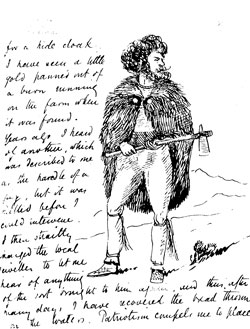 for a hide cloak.
I have seen a little
gold panned out of
a burn running
on the farm where
it was found.
Years ago I heard
of another, which
was described to me
as the handle of a
but it was
before I
could intervene.
I then straitly
the local
to let me
hear of anything
of the sort brought to him again, and thus, after
many days, I have recovered the bead thrown
on the waters. Patriotism compels me to place